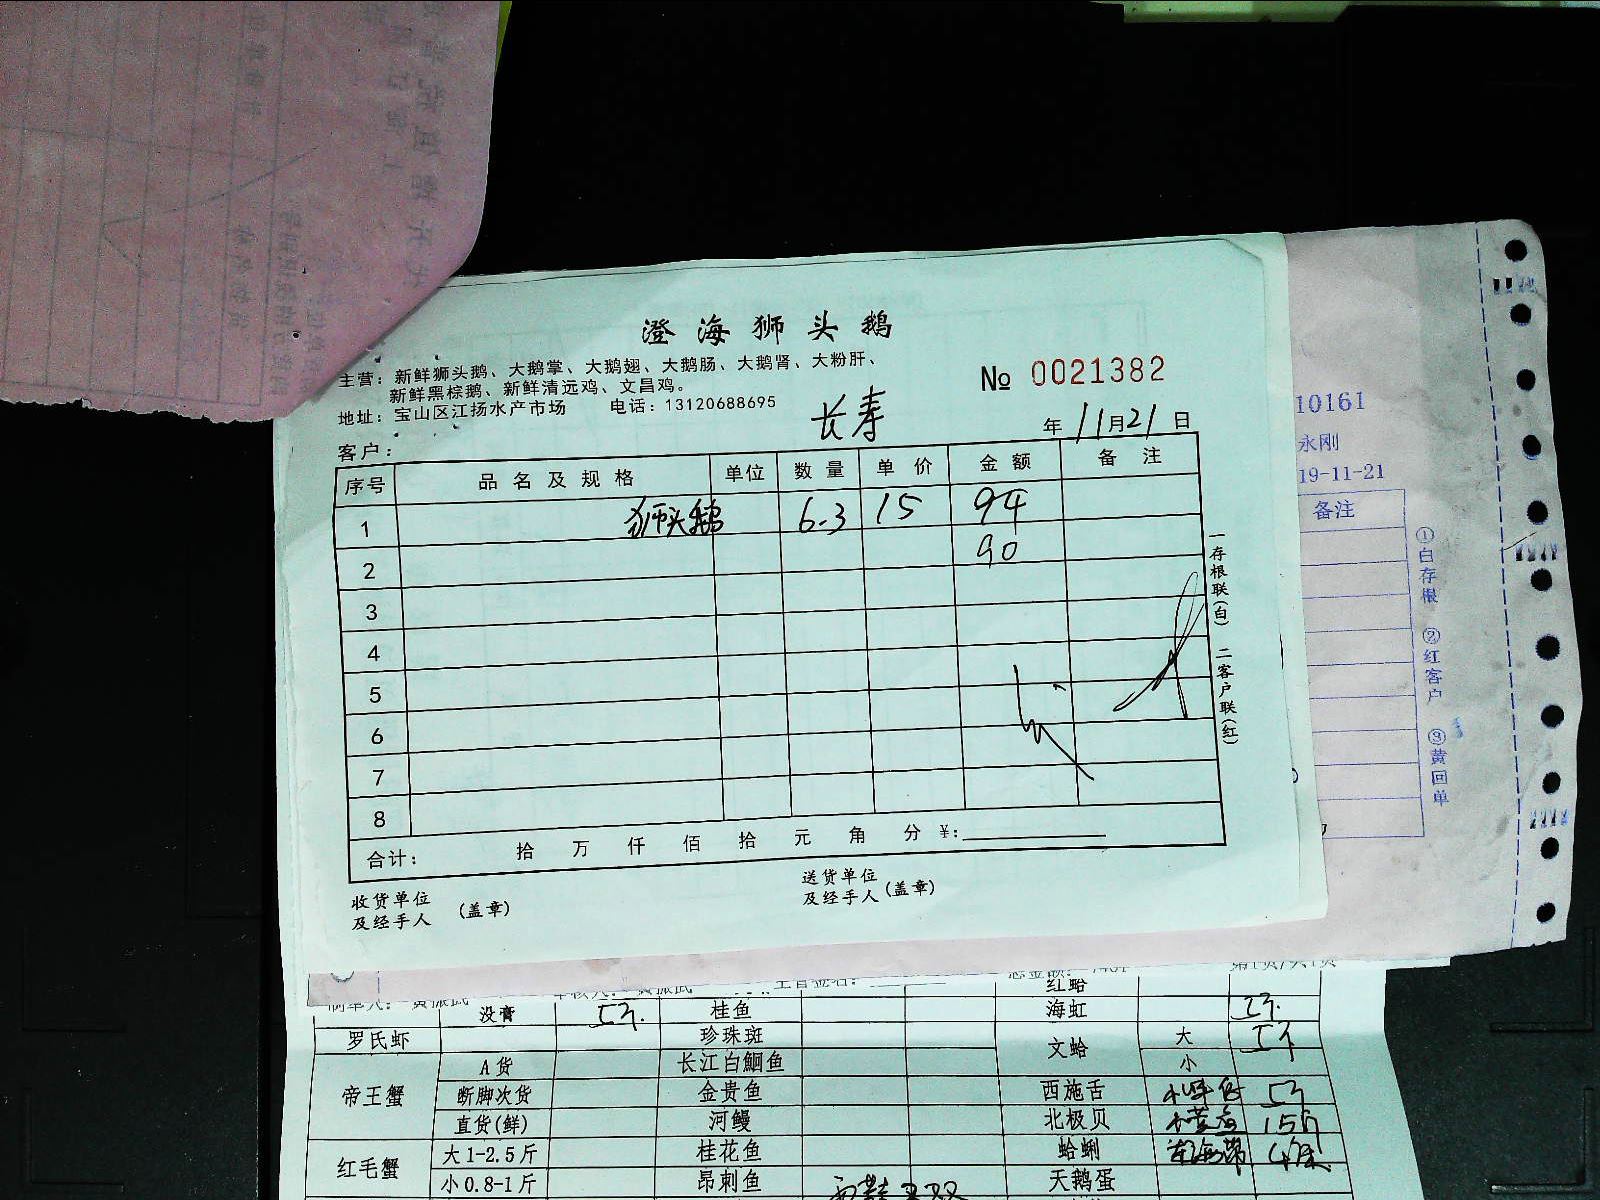 澄海狮头鹅
主营：新鲜狮头鹅、大鹅掌、大鹅翅、大鹅肠、大鹅肾、大粉肝、
新鲜黑棕鹅、新鲜清远鸡、文昌鸡。
地址：宝山区江扬水产市场 电话：13120688695
№ 0021382
客户： 长寿 年 11月21日
序号 品名及规格 单位 数量 单价 金额 备注
1 狮头鹅 6.3 15 94
2 90
3
4
5
6
7
8
合计： 拾 万 仟 佰 拾 元 角 分 ¥:
收货单位
及经手人 (盖章)
送货单位
及经手人 (盖章)
一存根联(白) 二客户联(红)
10161
永刚
19-11-21
备注
①白存根 ②红客户 ③黄回单
红蛤
没膏 桂鱼 海虹
罗氏虾 珍珠斑 文蛤 大
A货 长江白鮰鱼 小
帝王蟹 断脚次货 金贵鱼 西施舌
直货(鲜) 河鳗 北极贝
红毛蟹 大1-2.5斤 桂花鱼 蛤蜊
小0.8-1斤 昂刺鱼 天鹅蛋